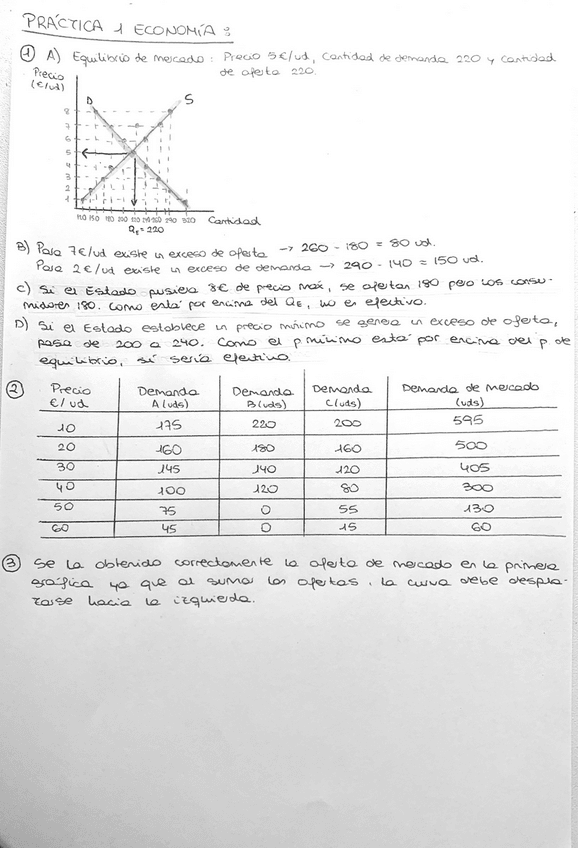 PRÁCTICA 1 ECONOMÍA:
① A) Equilibrio de mercado: Precio 5€/ud, Cantidad de demanda 220 y cantidad
de oferta 220.
Precio
(€/ud)
D
S
8
7
6
5
4
3
2
1
110 150 180 200 220 240 260 290 320
Cantidad
QE = 220
B) Para 7€/ud existe un exceso de oferta → 260 - 180 = 80 ud.
Para 2€/ud existe un exceso de demanda → 290 - 140 = 150 ud.
C) Si el Estado pusiera 8€ de precio max, se ofertan 180 pero los consu-
midores 180. Como está por encima del QE, no es efectivo.
D) Si el Estado establece un precio mínimo se genera un exceso de oferta,
pasa de 200 a 240. Como el p mínimo está por encima del p de
equilibrio, sí sería efectivo.
②
Precio €/ud | Demanda A (uds) | Demanda B (uds) | Demanda C (uds) | Demanda de mercado (uds)
10 | 175 | 220 | 200 | 595
20 | 160 | 180 | 160 | 500
30 | 145 | 140 | 120 | 405
40 | 100 | 120 | 80 | 300
50 | 75 | 0 | 55 | 130
60 | 45 | 0 | 15 | 60
③ Se ha obtenido correctamente la oferta de mercado en la primera
gráfica ya que al sumar las ofertas, la curva debe despla-
zarse hacia la izquierda.